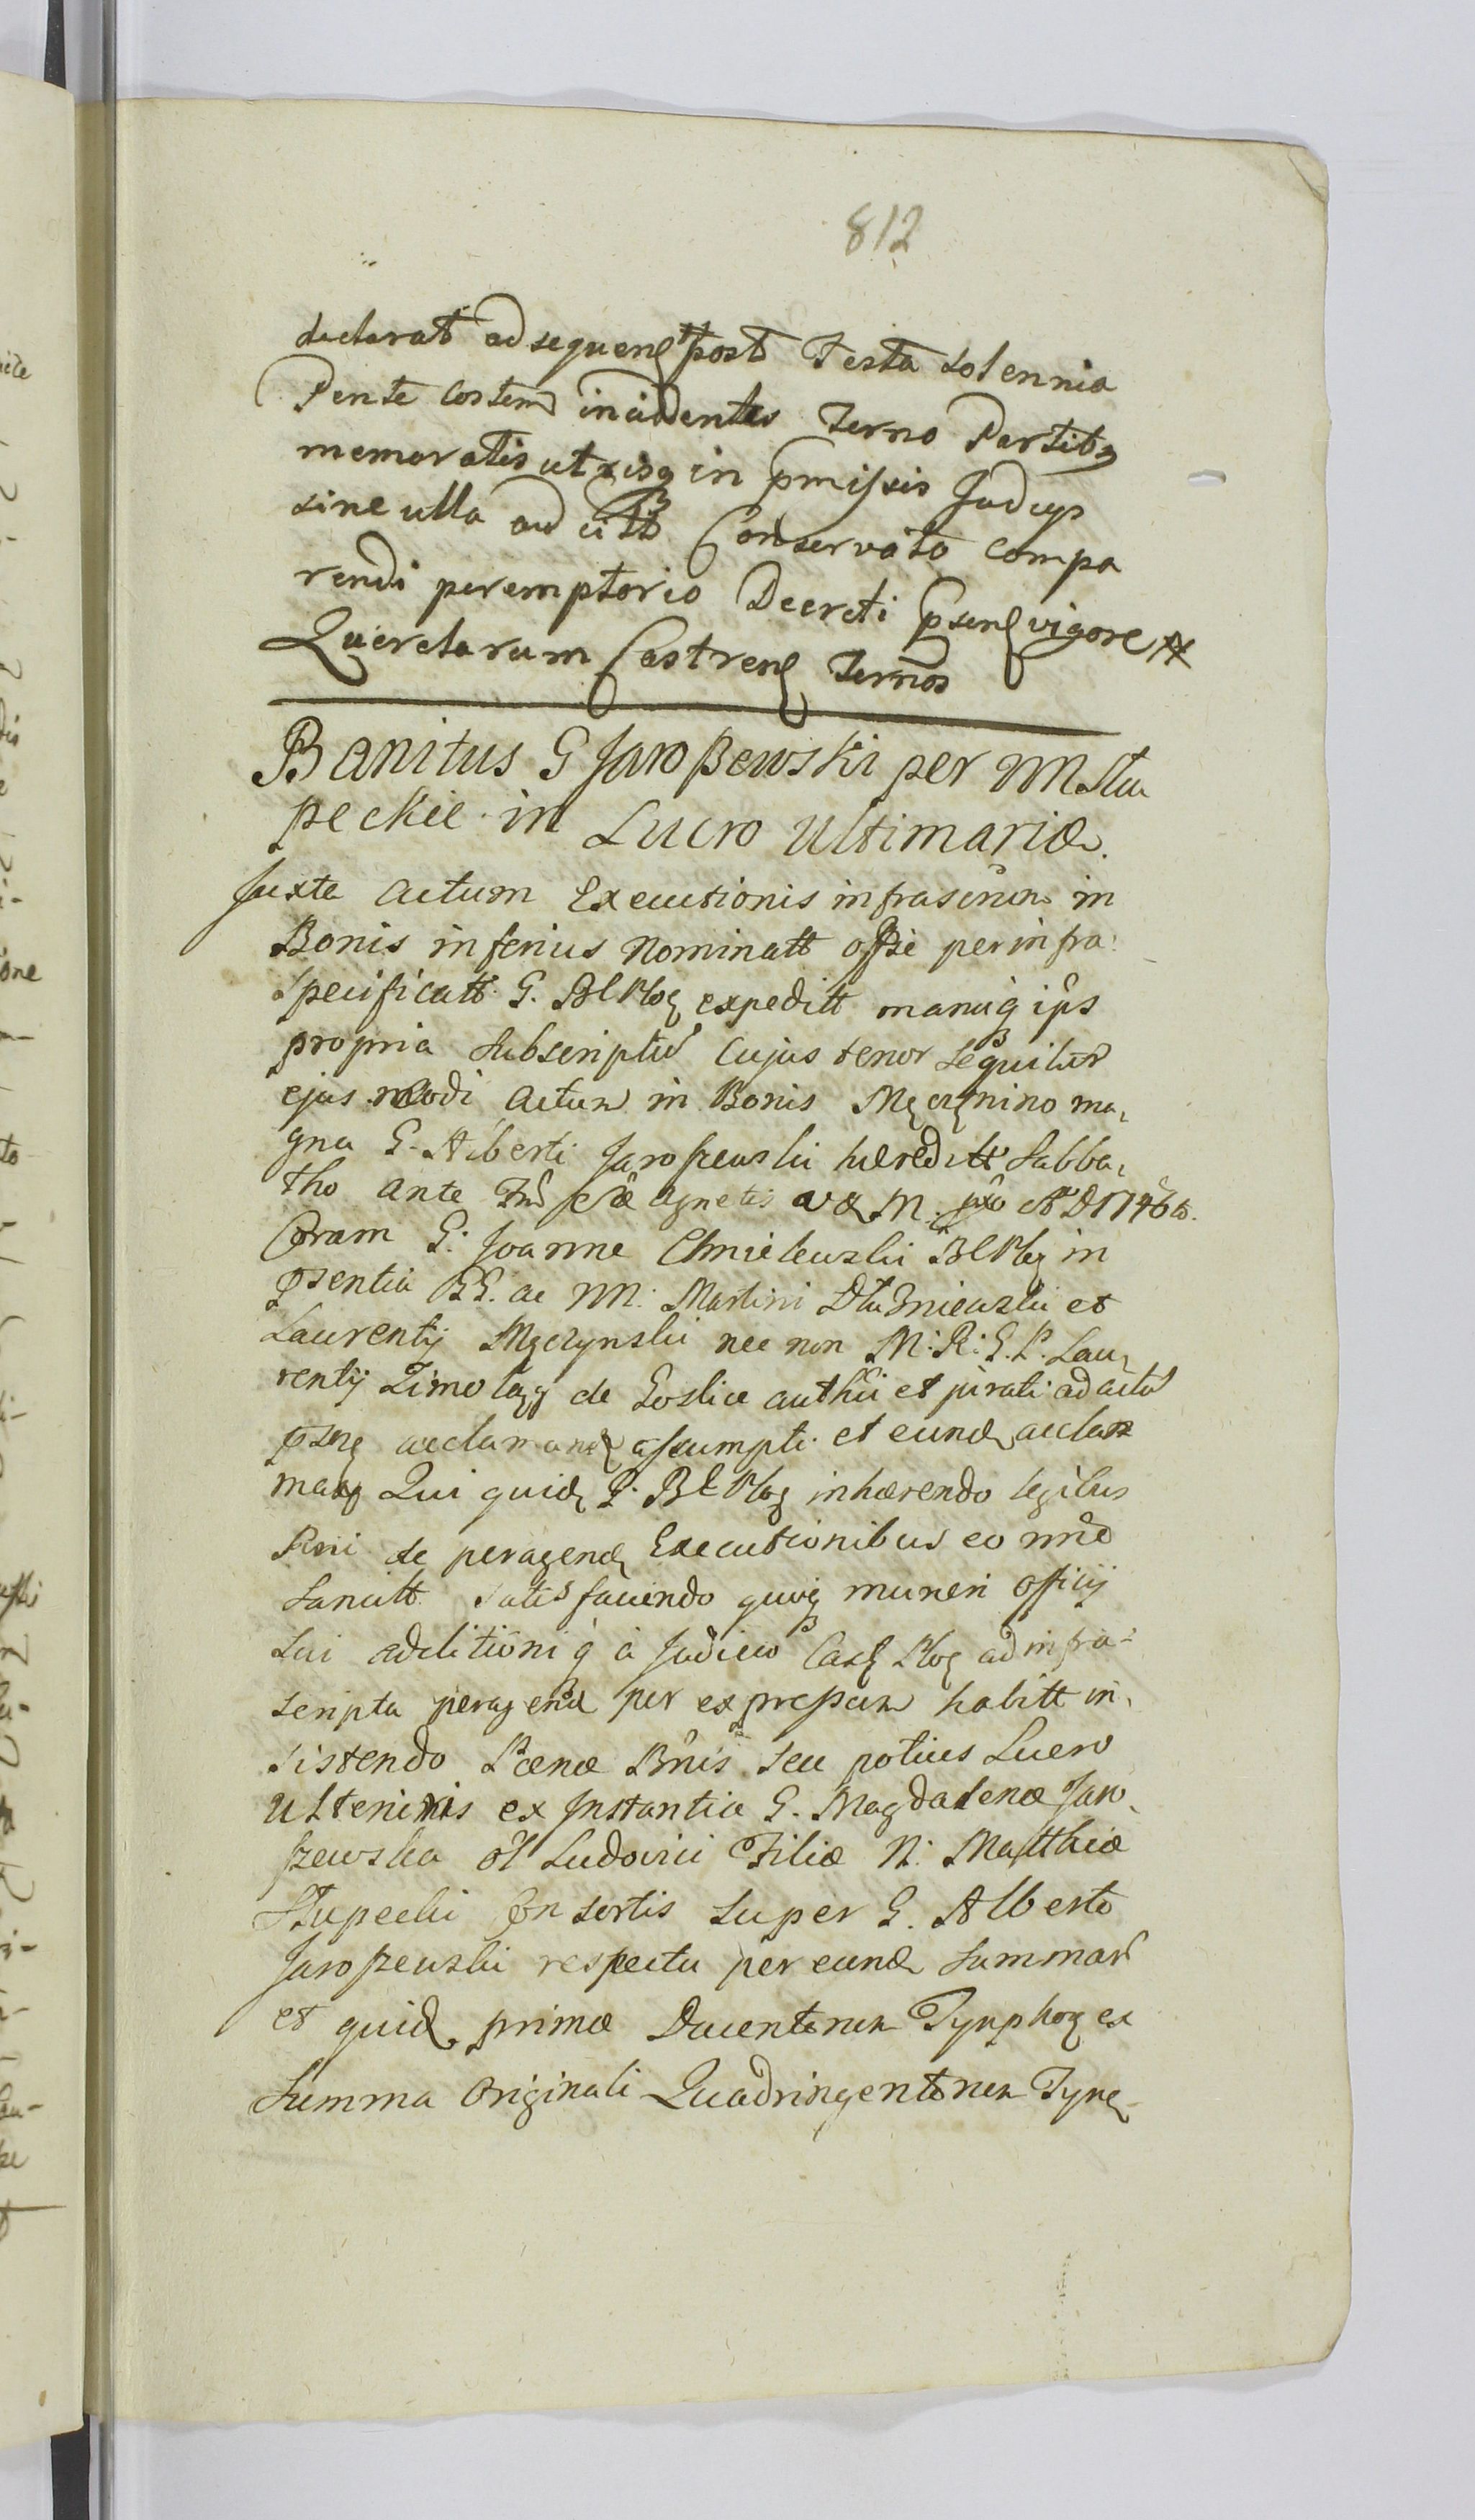 812
declarat ad sequen post Festa Solennia
Pentecostem incidentes Termo Partibq
memoratis utrisq in pmissis Judcys
sine ulla ad citt Conservato compa
rendi peremptorio Decreti psen vigore
Querelarum Castren Termos
Banitus G Jaroszewski per M Stu
peckie in Lucro Ultimaria
Juxta Actum Executionis infrascrum in
Bonis inferius Nominatt offie per infra
Specificatt G. expeditt manuq ips
propria Subscriptu Cujus tenor Sequitur
ejusmodi Actum in Bonis Męczenino ma
gna G. Alberti Jaroszewski hæreditt Sabba
tho ante Agnetis V & M. A D 1746to.
Coram G. Joanne Chmielewski in
psentia GG. ac NN. Martini Dłużniewski et
Laurentij Męczynski nec non M. R. G. P. Lau
rentij de Goslice et jurati ad actu
psen acclamand assumpti et eund accla
man Qui quid G. inhærendo legibus
Rni de peragend Executionibus eo nne
Sancitt Satisfaciendo quoq muneri officij
Sui additioniq à Judicio Cas Płoc ad infra
scripta peragend per expressum habitt in
sistendo Pœnæ Bnis seu potius Lucro
Ulterioris ex Instantia G. Magdalenæ Jaro
szewska ol Ludovici Filiæ N. Matthiæ
Stupecki Consortis super G. Alberto
Jaroszewski respectu per eund summar
et quid primæ Ducentorum Tynphoq ex
Summa Originali Quadringentorum Tyn